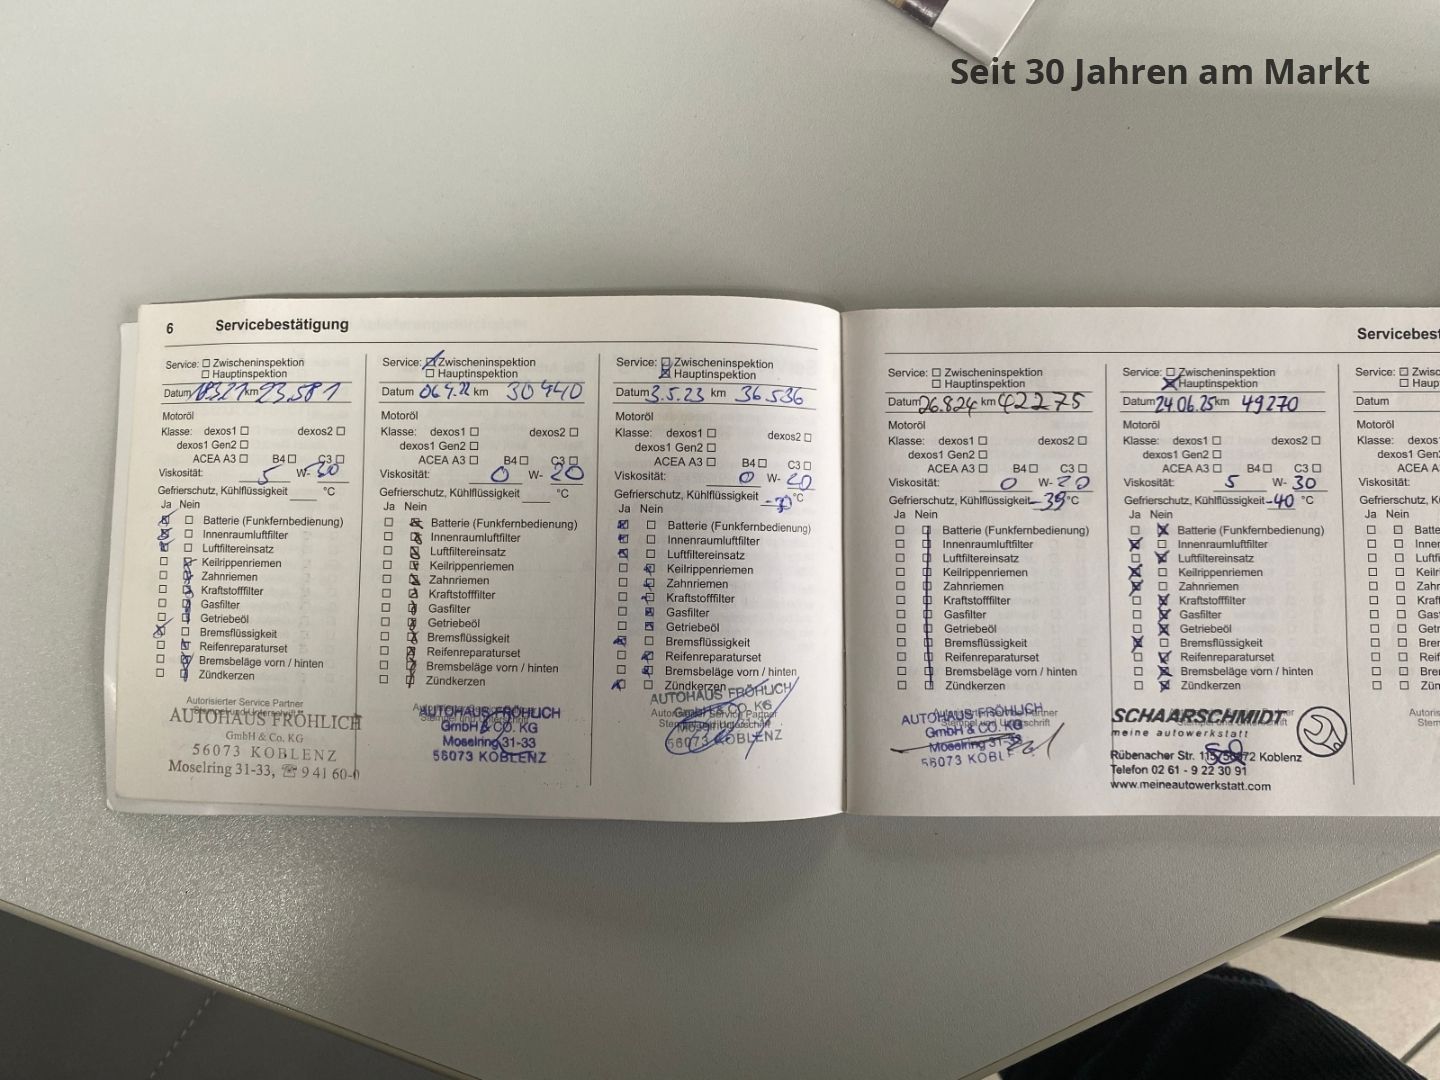 Seit 30 Jahren am Markt
6 Servicebestätigung
Service: Zwischeninspektion
Hauptinspektion
Datum km 23.581
Motoröl
Klasse: dexos1 dexos2
dexos1 Gen2
ACEA A3 B4 C3
Viskosität: 5 W- 30
Gefrierschutz, Kühlflüssigkeit °C
Ja Nein
Batterie (Funkfernbedienung)
Innenraumluftfilter
Luftfiltereinsatz
Keilrippenriemen
Zahnriemen
Kraftstofffilter
Gasfilter
Getriebeöl
Bremsflüssigkeit
Reifenreparaturset
Bremsbeläge vorn / hinten
Zündkerzen
Autorisierter Service Partner
Stempel und Unterschrift
AUTOHAUS FRÖHLICH
GmbH & CO. KG
56073 KOBLENZ
Moselring 31-33, ☏ 9 41 60-0
Service: Zwischeninspektion
Hauptinspektion
Datum 06.4.22 km 30 440
Motoröl
Klasse: dexos1 dexos2
dexos1 Gen2
ACEA A3 B4 C3
Viskosität: 0 W- 20
Gefrierschutz, Kühlflüssigkeit °C
Ja Nein
Batterie (Funkfernbedienung)
Innenraumluftfilter
Luftfiltereinsatz
Keilrippenriemen
Zahnriemen
Kraftstofffilter
Gasfilter
Getriebeöl
Bremsflüssigkeit
Reifenreparaturset
Bremsbeläge vorn / hinten
Zündkerzen
AUTOHAUS FRÖHLICH
GmbH & CO. KG
Moselring 31-33
56073 KOBLENZ
Service: Zwischeninspektion
Hauptinspektion
Datum 3.5.23 km 36 536
Motoröl
Klasse: dexos1 dexos2
dexos1 Gen2
ACEA A3 B4 C3
Viskosität: 0 W- 20
Gefrierschutz, Kühlflüssigkeit °C
Ja Nein
Batterie (Funkfernbedienung)
Innenraumluftfilter
Luftfiltereinsatz
Keilrippenriemen
Zahnriemen
Kraftstofffilter
Gasfilter
Getriebeöl
Bremsflüssigkeit
Reifenreparaturset
Bremsbeläge vorn / hinten
Zündkerzen
AUTOHAUS FRÖHLICH
GmbH & CO. KG
Moselring 31-33
56073 KOBLENZ
Servicebest
Service: Zwischeninspektion
Hauptinspektion
Datum 26.8.24 km 42275
Motoröl
Klasse: dexos1 dexos2
dexos1 Gen2
ACEA A3 B4 C3
Viskosität: 0 W- 20
Gefrierschutz, Kühlflüssigkeit -39 °C
Ja Nein
Batterie (Funkfernbedienung)
Innenraumluftfilter
Luftfiltereinsatz
Keilrippenriemen
Zahnriemen
Kraftstofffilter
Gasfilter
Getriebeöl
Bremsflüssigkeit
Reifenreparaturset
Bremsbeläge vorn / hinten
Zündkerzen
AUTOHAUS FRÖHLICH
GmbH & CO. KG
Moselring 31-33
56073 KOBL
Service: Zwischeninspektion
Hauptinspektion
Datum 24.06.25 km 49270
Motoröl
Klasse: dexos1 dexos2
dexos1 Gen2
ACEA A3 B4 C3
Viskosität: 5 W- 30
Gefrierschutz, Kühlflüssigkeit -40 °C
Ja Nein
Batterie (Funkfernbedienung)
Innenraumluftfilter
Luftfiltereinsatz
Keilrippenriemen
Zahnriemen
Kraftstofffilter
Gasfilter
Getriebeöl
Bremsflüssigkeit
Reifenreparaturset
Bremsbeläge vorn / hinten
Zündkerzen
SCHAARSCHMIDT
meine autowerkstatt
Rübenacher Str. Koblenz
Telefon 02 61 - 9 22 30 91
www.meineautowerkstatt.com
Service: Zwisc
Haupt
Datum
Motoröl
Klasse: dexos1
dexos1
ACEA A
Viskosität:
Gefrierschutz, Kühlf
Ja Nein
Batte
Innen
Luftfi
Keilri
Zahn
Kraft
Gas
Getri
Bre
Reif
Bre
Zün